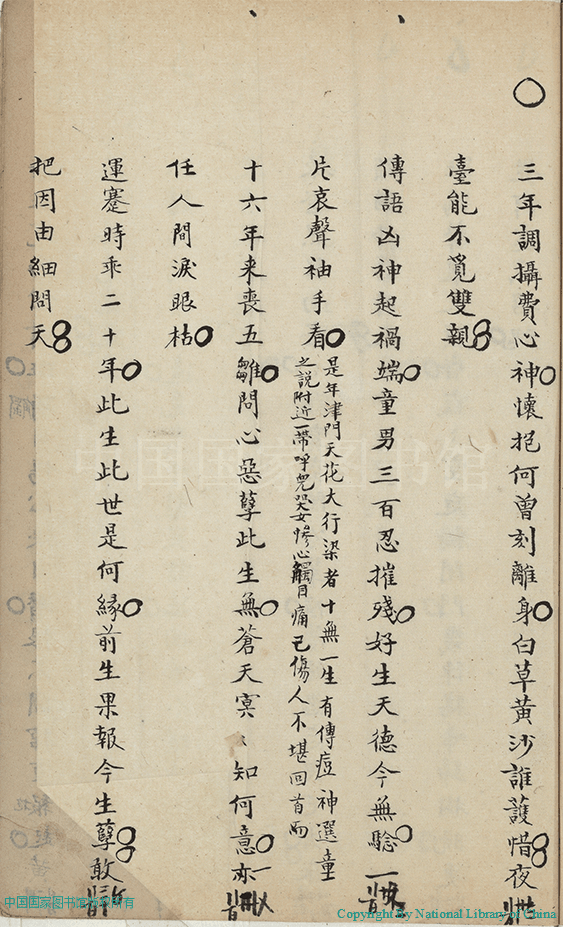 三年調攝費心神懷抱何曾刻離身白草黃沙誰護惜夜
臺能不覓雙親
傳語凶神起禍端童男三百忍摧殘好生天德今無驗一
片哀聲袖手看
是年津門天花大行染者十無一生有傳痘神選童
之說附近一帶呼兒哭女慘心觸目痛己傷人不堪回首
十六年来喪五雛問心惡孽此生無蒼天冥〻知何意亦
任人間淚眼枯
運蹇時乖二十年此生此世是何緣前生果報今生孽敢
把因由細問天
中国国家图书馆
中国国家图书馆版权所有
Copyright By National Library of China